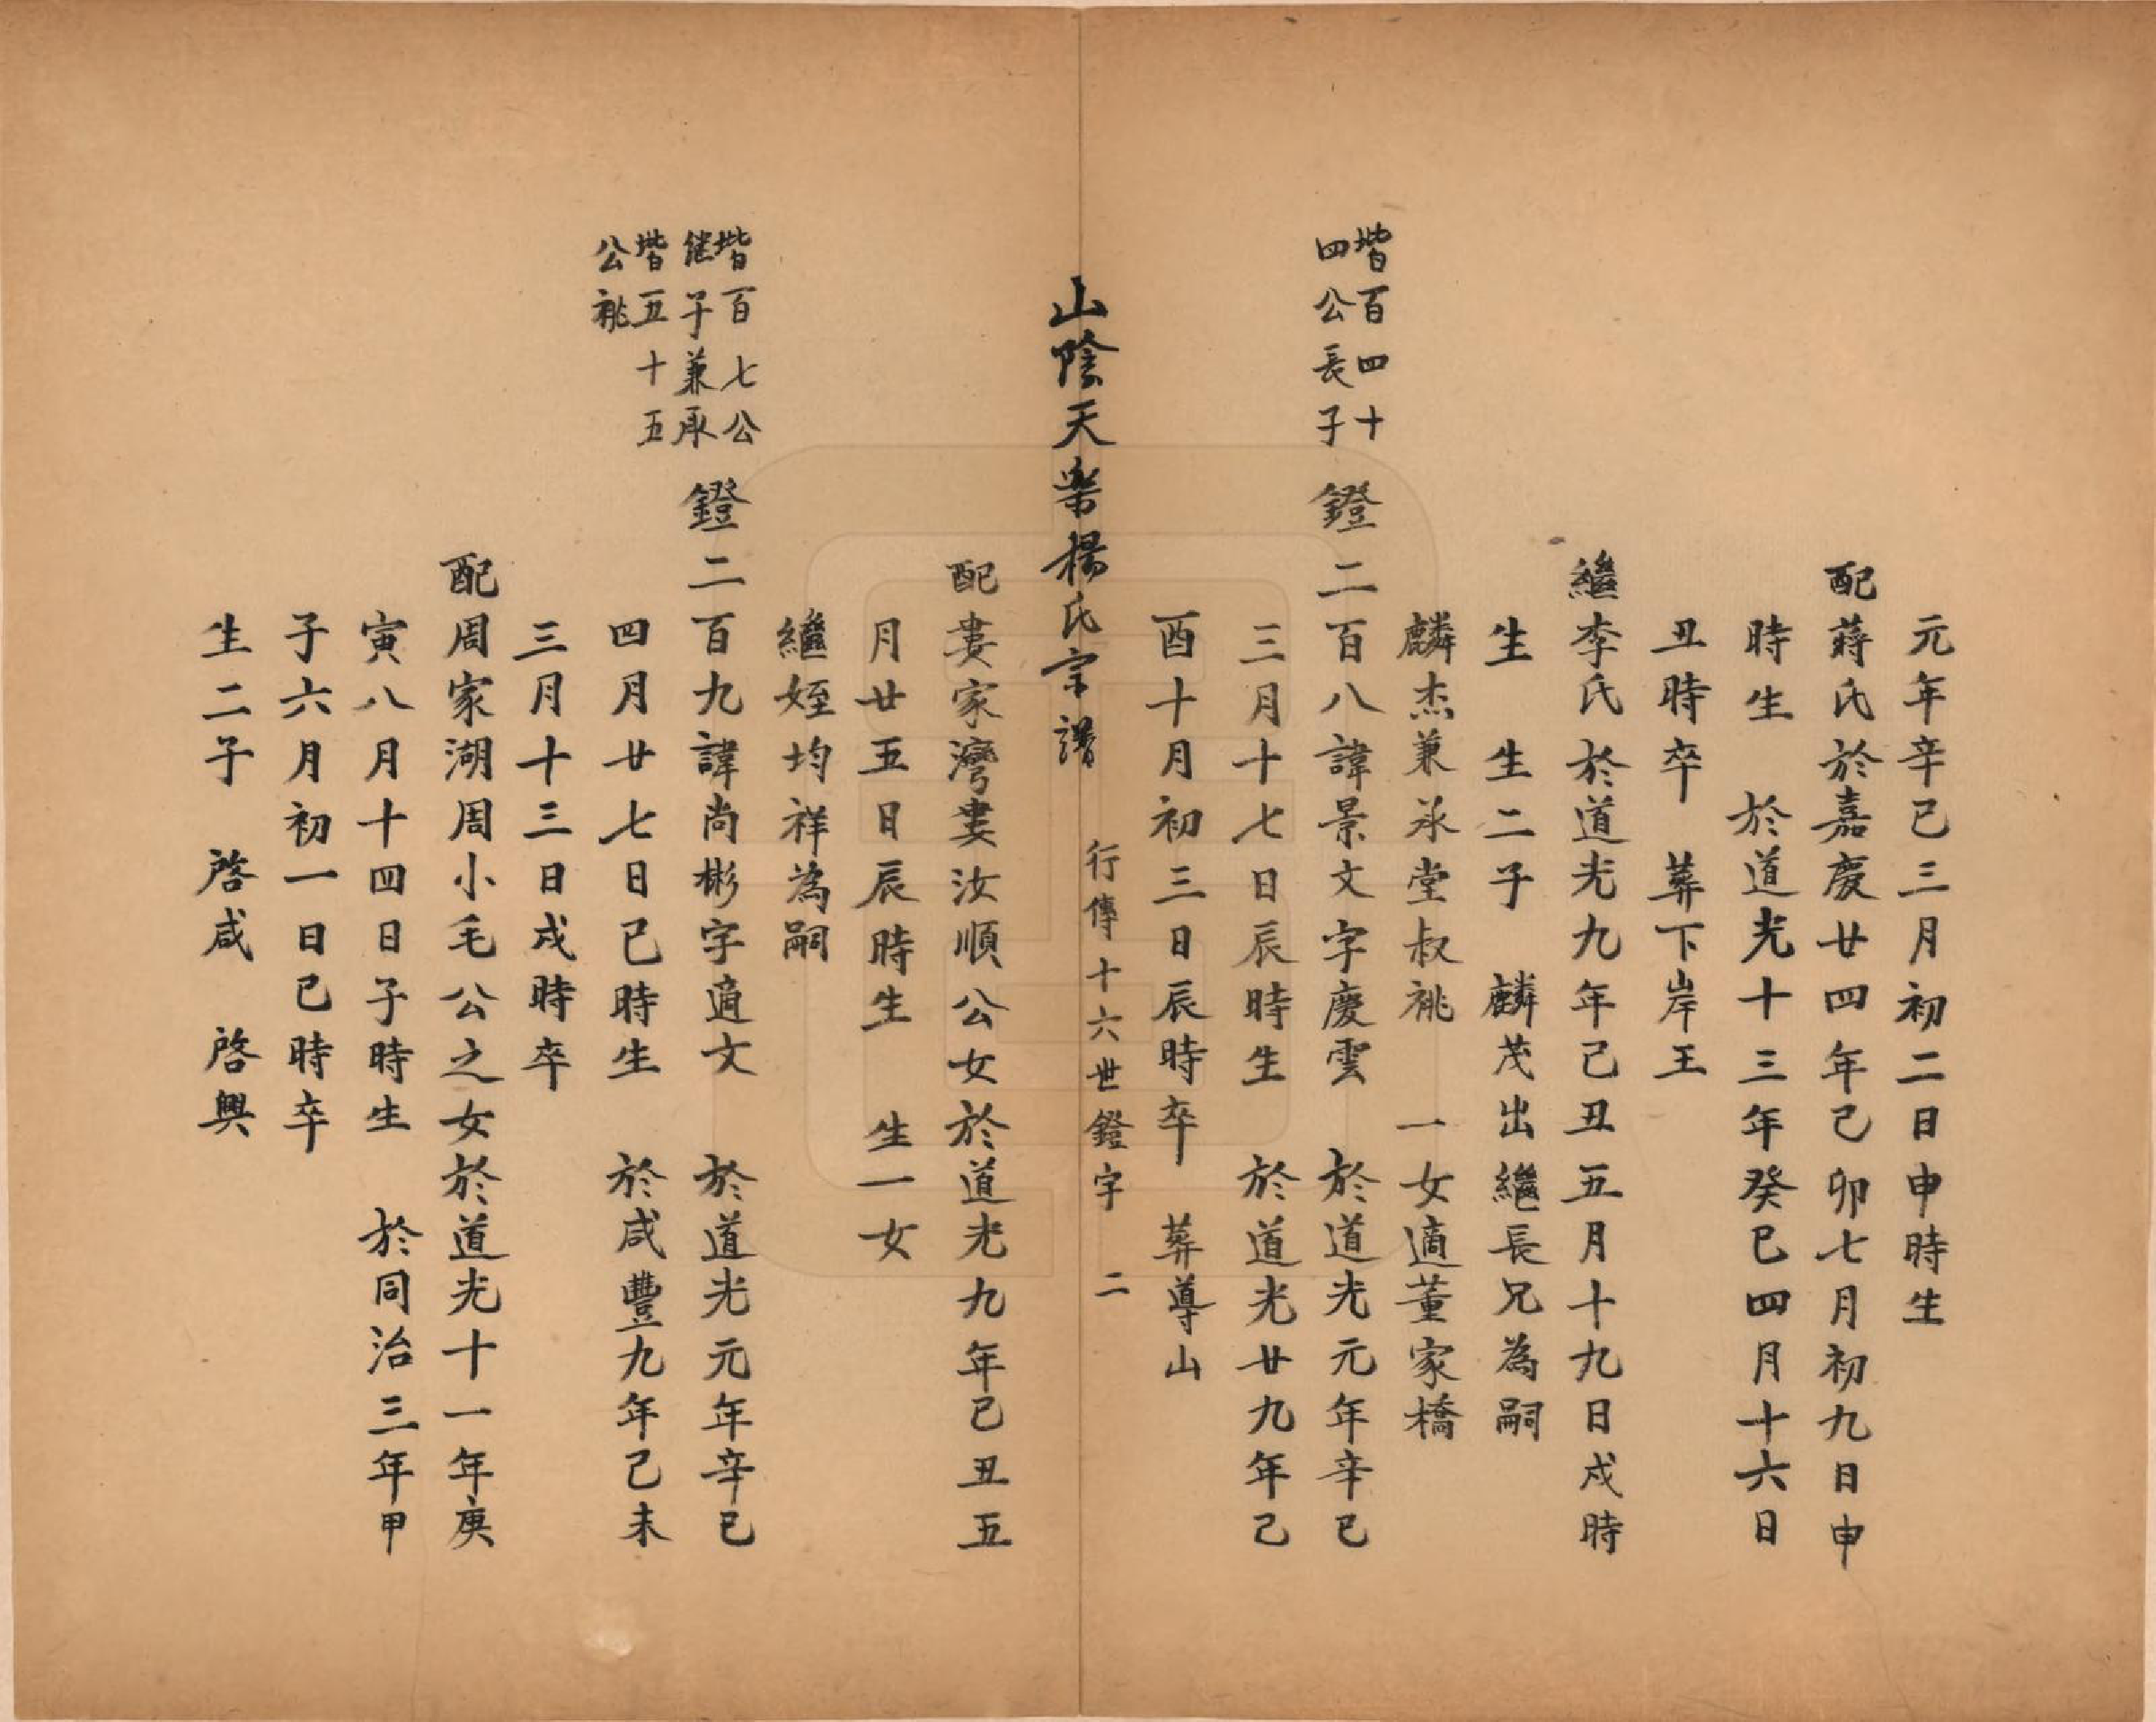 元年辛巳三月初二日申時生
配蔣氏於嘉慶廿四年己卯七月初九日申
時生　於道光十三年癸巳四月十六日
丑時卒　葬下岸王
繼李氏於道光九年己丑五月十九日戌時
生　生二子　麟茂出繼長兄為嗣
麟杰兼承堂叔祧　一女適董家橋
堦百四十
四公長子
鐙二百八諱景文字慶雲　於道光元年辛巳
三月十七日辰時生　於道光廿九年己
酉十月初三日辰時卒　葬導山
山陰天樂楊氏宗譜　行傳十六世鐙字　二
配婁家灣婁汝順公女於道光九年己丑五
月廿五日辰時生　生一女
繼姪均祥為嗣
堦百七公
継子兼承
堦五十五
公祧
鐙二百九諱尚彬字適文　於道光元年辛巳
四月廿七日巳時生　於咸豐九年己未
三月十三日戌時卒
配周家湖周小毛公之女於道光十一年庚
寅八月十四日子時生　於同治三年甲
子六月初一日巳時卒
生二子　啓咸　啓興